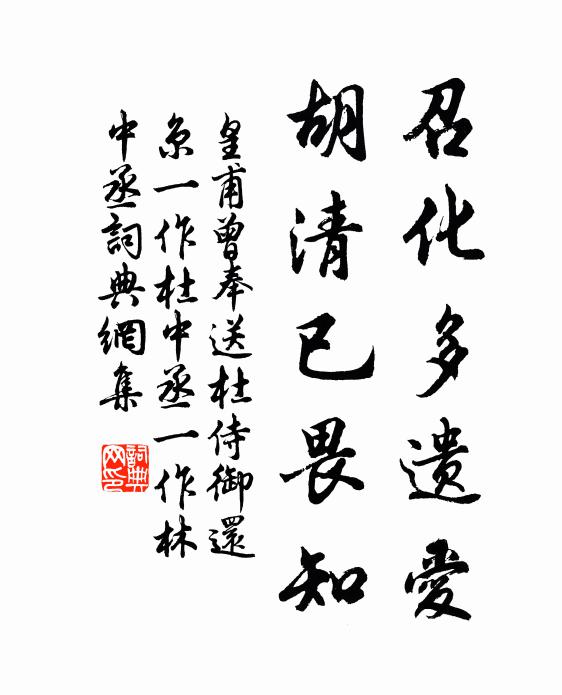 召化多遺愛
胡清已畏知
皇甫曾奉送杜侍御還
京一作杜中丞一作林
中丞詞典網集
詞典
网印